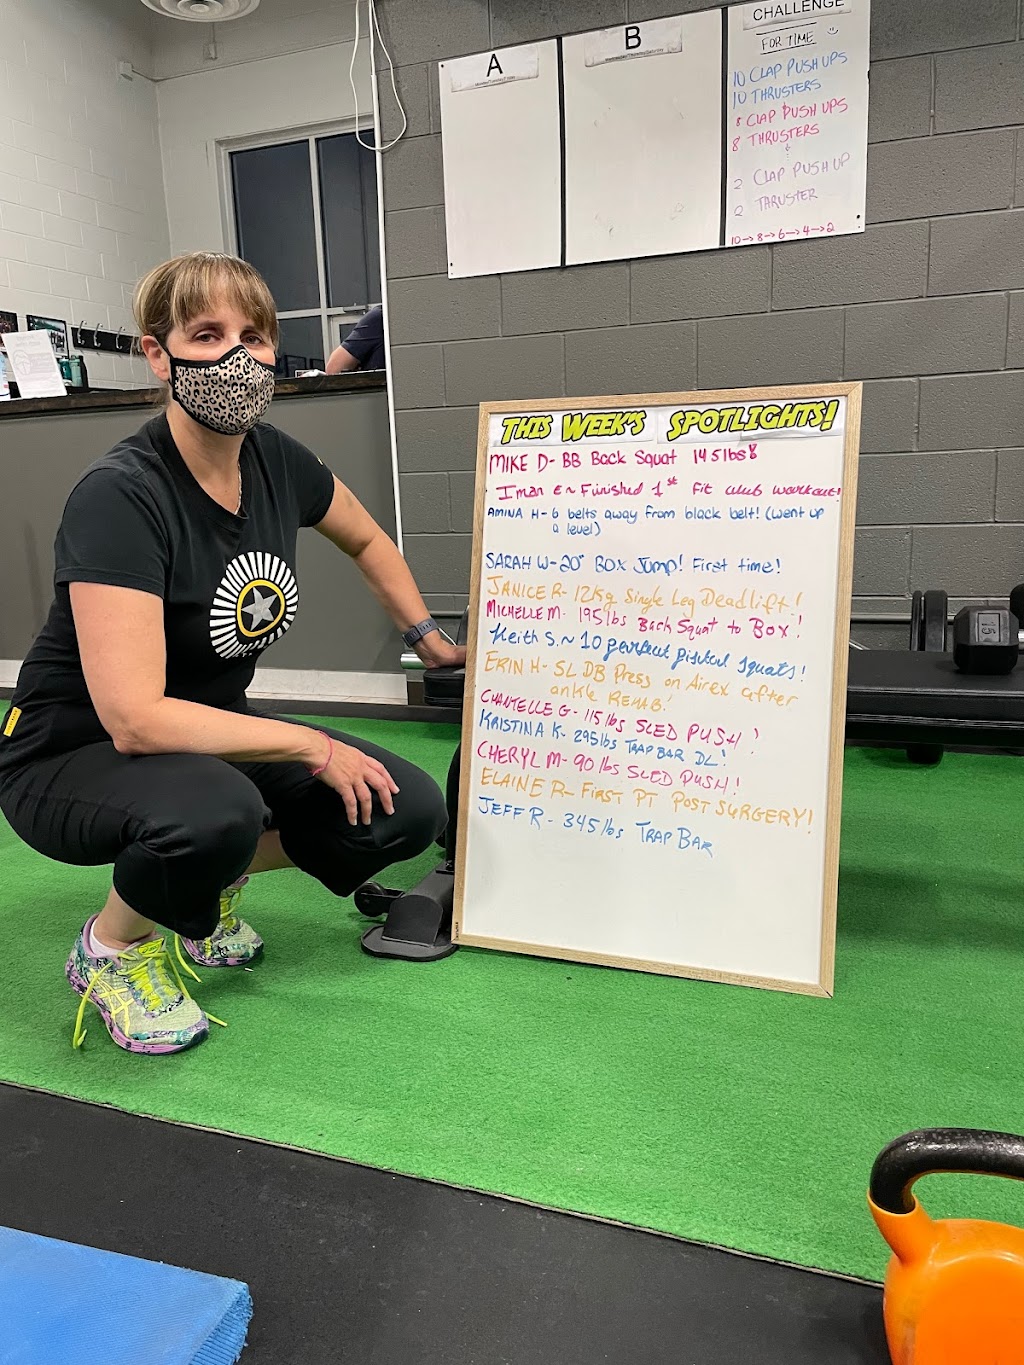 A
B
CHALLENGE
FOR TIME
10 CLAP PUSH UPS
10 THRUSTERS
8 CLAP PUSH UPS
8 THRUSTERS
2 CLAP PUSH UP
2 THRUSTER
10→8→6→4→2
THIS WEEK'S SPOTLIGHTS!
MIKE D- BB Back Squat 145lbs!
Iman E ~ Finished 1st Fit club workout!
AMINA H- 6 belts away from black belt! (went up
a level)
SARAH W- 20" BOX JUMP! First time!
JANICE R- 12kg Single Leg Deadlift!
MICHELLE M- 195lbs Back Squat to Box!
Keith S. ~ 10 perfect pistol squats!
ERIN H- SL DB Press on Airex after
ankle REHAB!
CHANTELLE G- 115lbs SLED PUSH!
KRISTINA K- 295lbs TRAP BAR DL!
CHERYL M- 90 lbs SLED PUSH!
ELAINE R- FIRST PT POST SURGERY!
JEFF R - 345lbs TRAP BAR